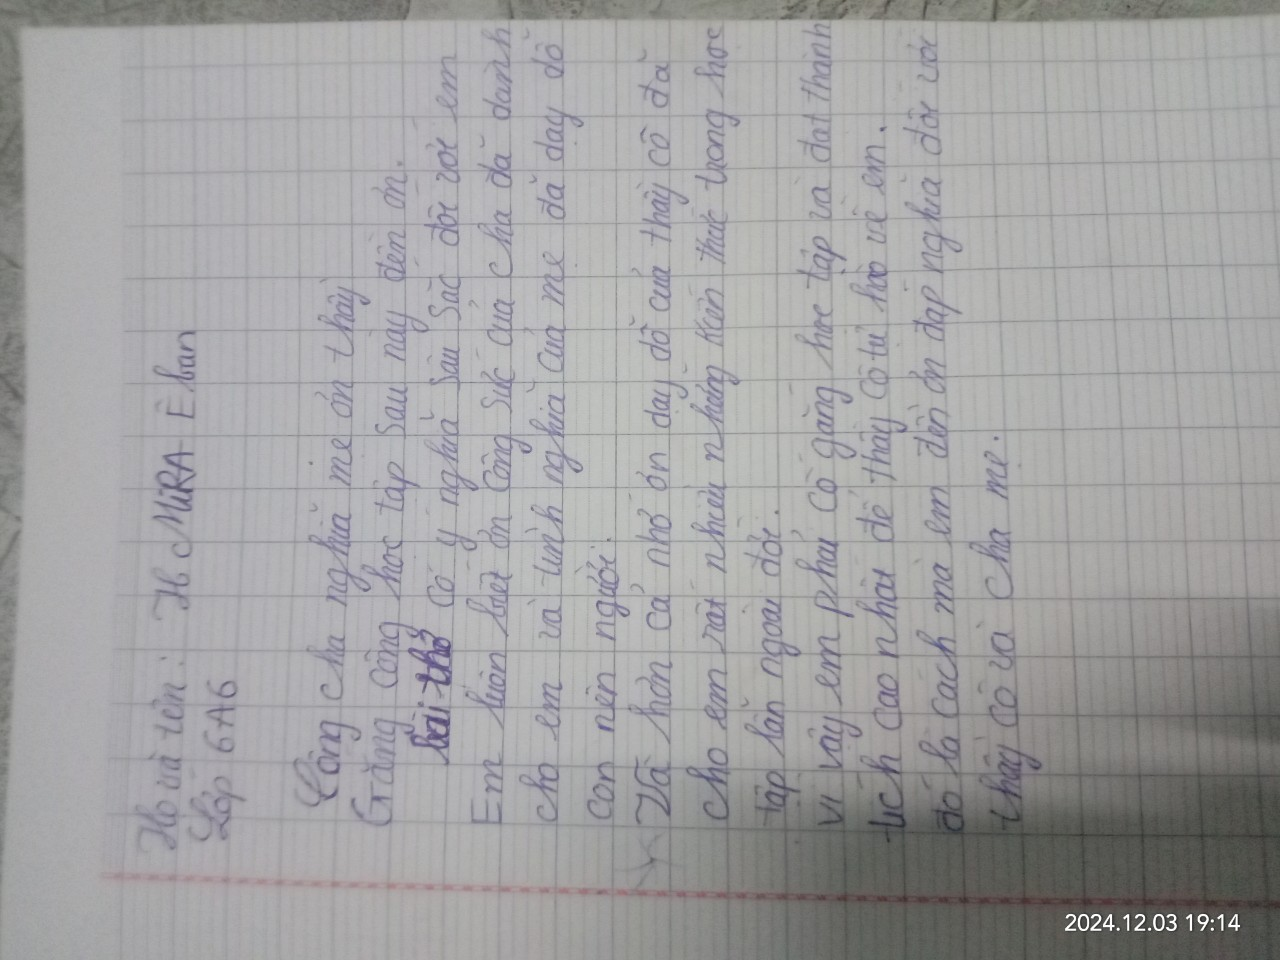 Họ và tên: H MiRA Ê ban
Lớp 6A6
Công cha nghĩa mẹ ơn thầy
Gắng công học tập sau này đền ơn.
bài thơ có ý nghĩa sâu sắc đối với em
Em luôn biết ơn công sức của cha đã dành
cho em và tình nghĩa của mẹ đã dạy dỗ
con nên người.
Và hơn cả nhớ ơn dạy dỗ của thầy cô đã
cho em rất nhiều những kiến thức trong học
tập lẫn ngoài đời.
vì vậy em phải cố gắng học tập và đạt thành
tích cao nhất để thầy cô tự hào về em.
đó là cách mà em đền ơn đáp nghĩa đối với
thầy cô và cha mẹ.
2024.12.03 19:14